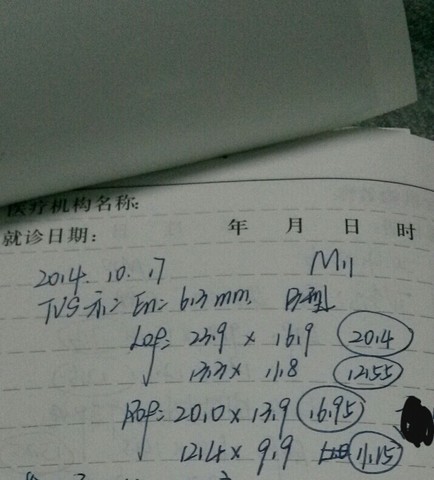 医疗机构名称:
就诊日期: 年 月 日 时
2014.10.17 M11
TVS示: En: 6.3mm. B型
Lof: 23.9 x 16.9 20.4
13.3 x 11.8 12.55
Rof: 20.0 x 13.9 16.95
12.4 x 9.9 11.15